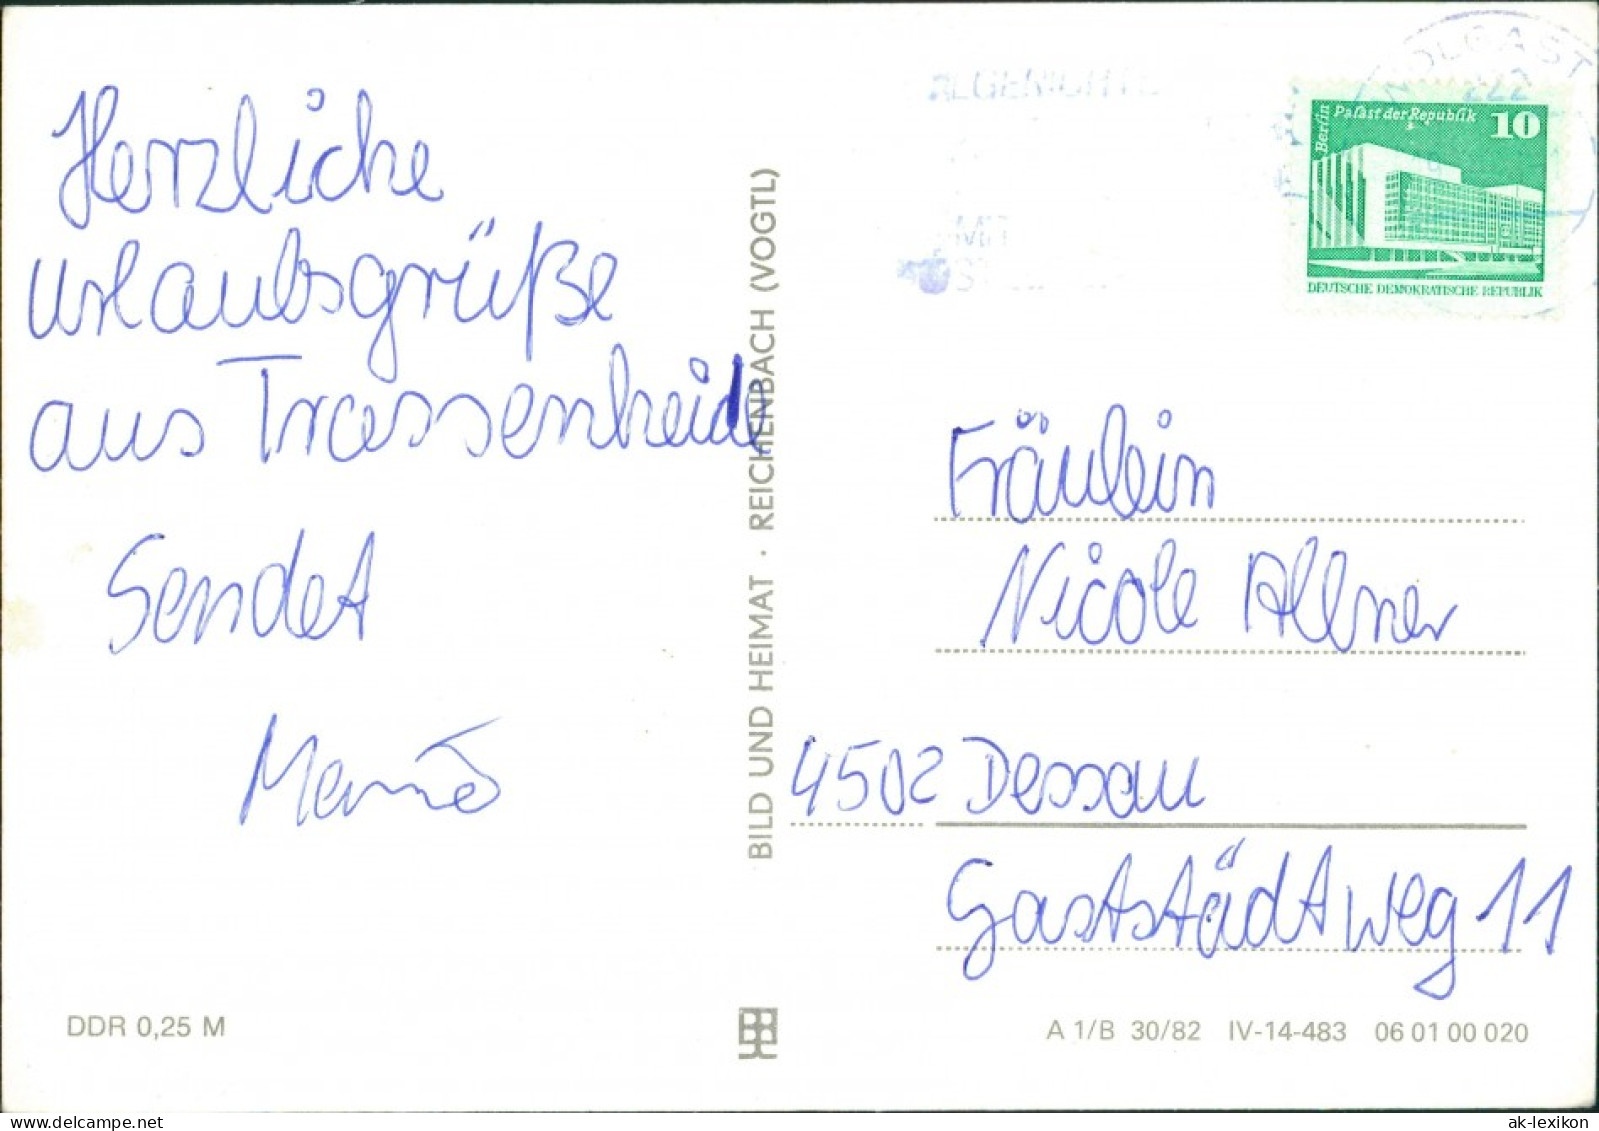 Herzliche
Urlaubsgrüße
aus Trassenheide
Sendet
BILD UND HEIMAT · REICHENBACH (VOGTL)
WOLGAST
222
Berlin
Palast der Republik
10
DEUTSCHE DEMOKRATISCHE REPUBLIK
Fräulein
Nicole Allner
4502 Dessau
Gaststädtweg 11
DDR 0,25 M
A 1/B 30/82 IV-14-483 06 01 00 020
ak-lexikon.de